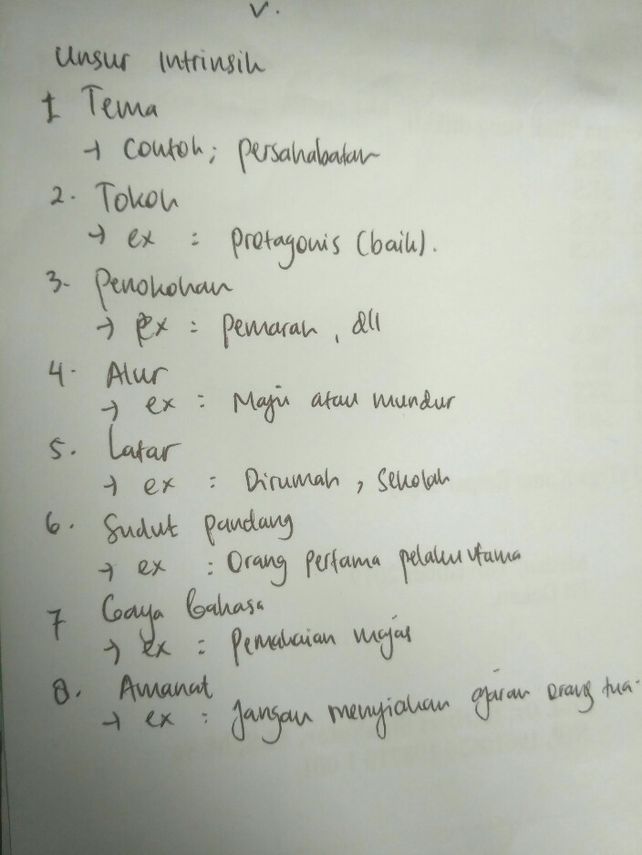 V.
Unsur Intrinsik
1 Tema
→ Contoh; persahabatan
2. Tokoh
→ ex : protagonis (baik).
3. Penokohan
→ ex : pemarah, dll
4. Alur
→ ex : Maju atau mundur
5. Latar
→ ex : Dirumah, Sekolah
6. Sudut pandang
→ ex : Orang pertama pelaku utama
7 Gaya bahasa
→ ex : pemakaian majas
8. Amanat
→ ex : jangan menyiakan ajaran orang tua.